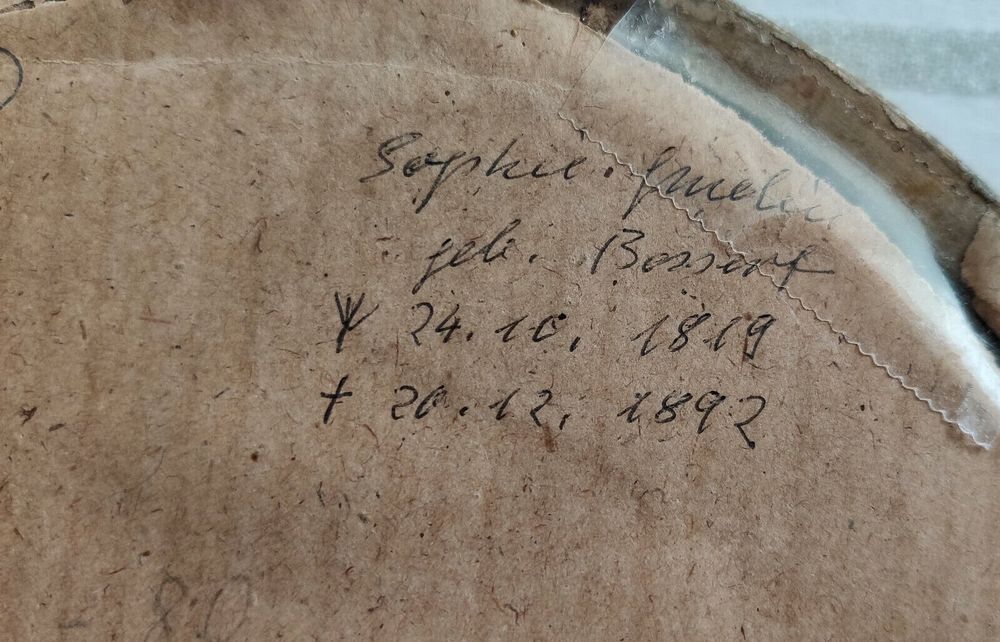 Sophie Gmelin
geb. Bossert
ᛉ 24.10. 1819
† 20.12. 1892
80